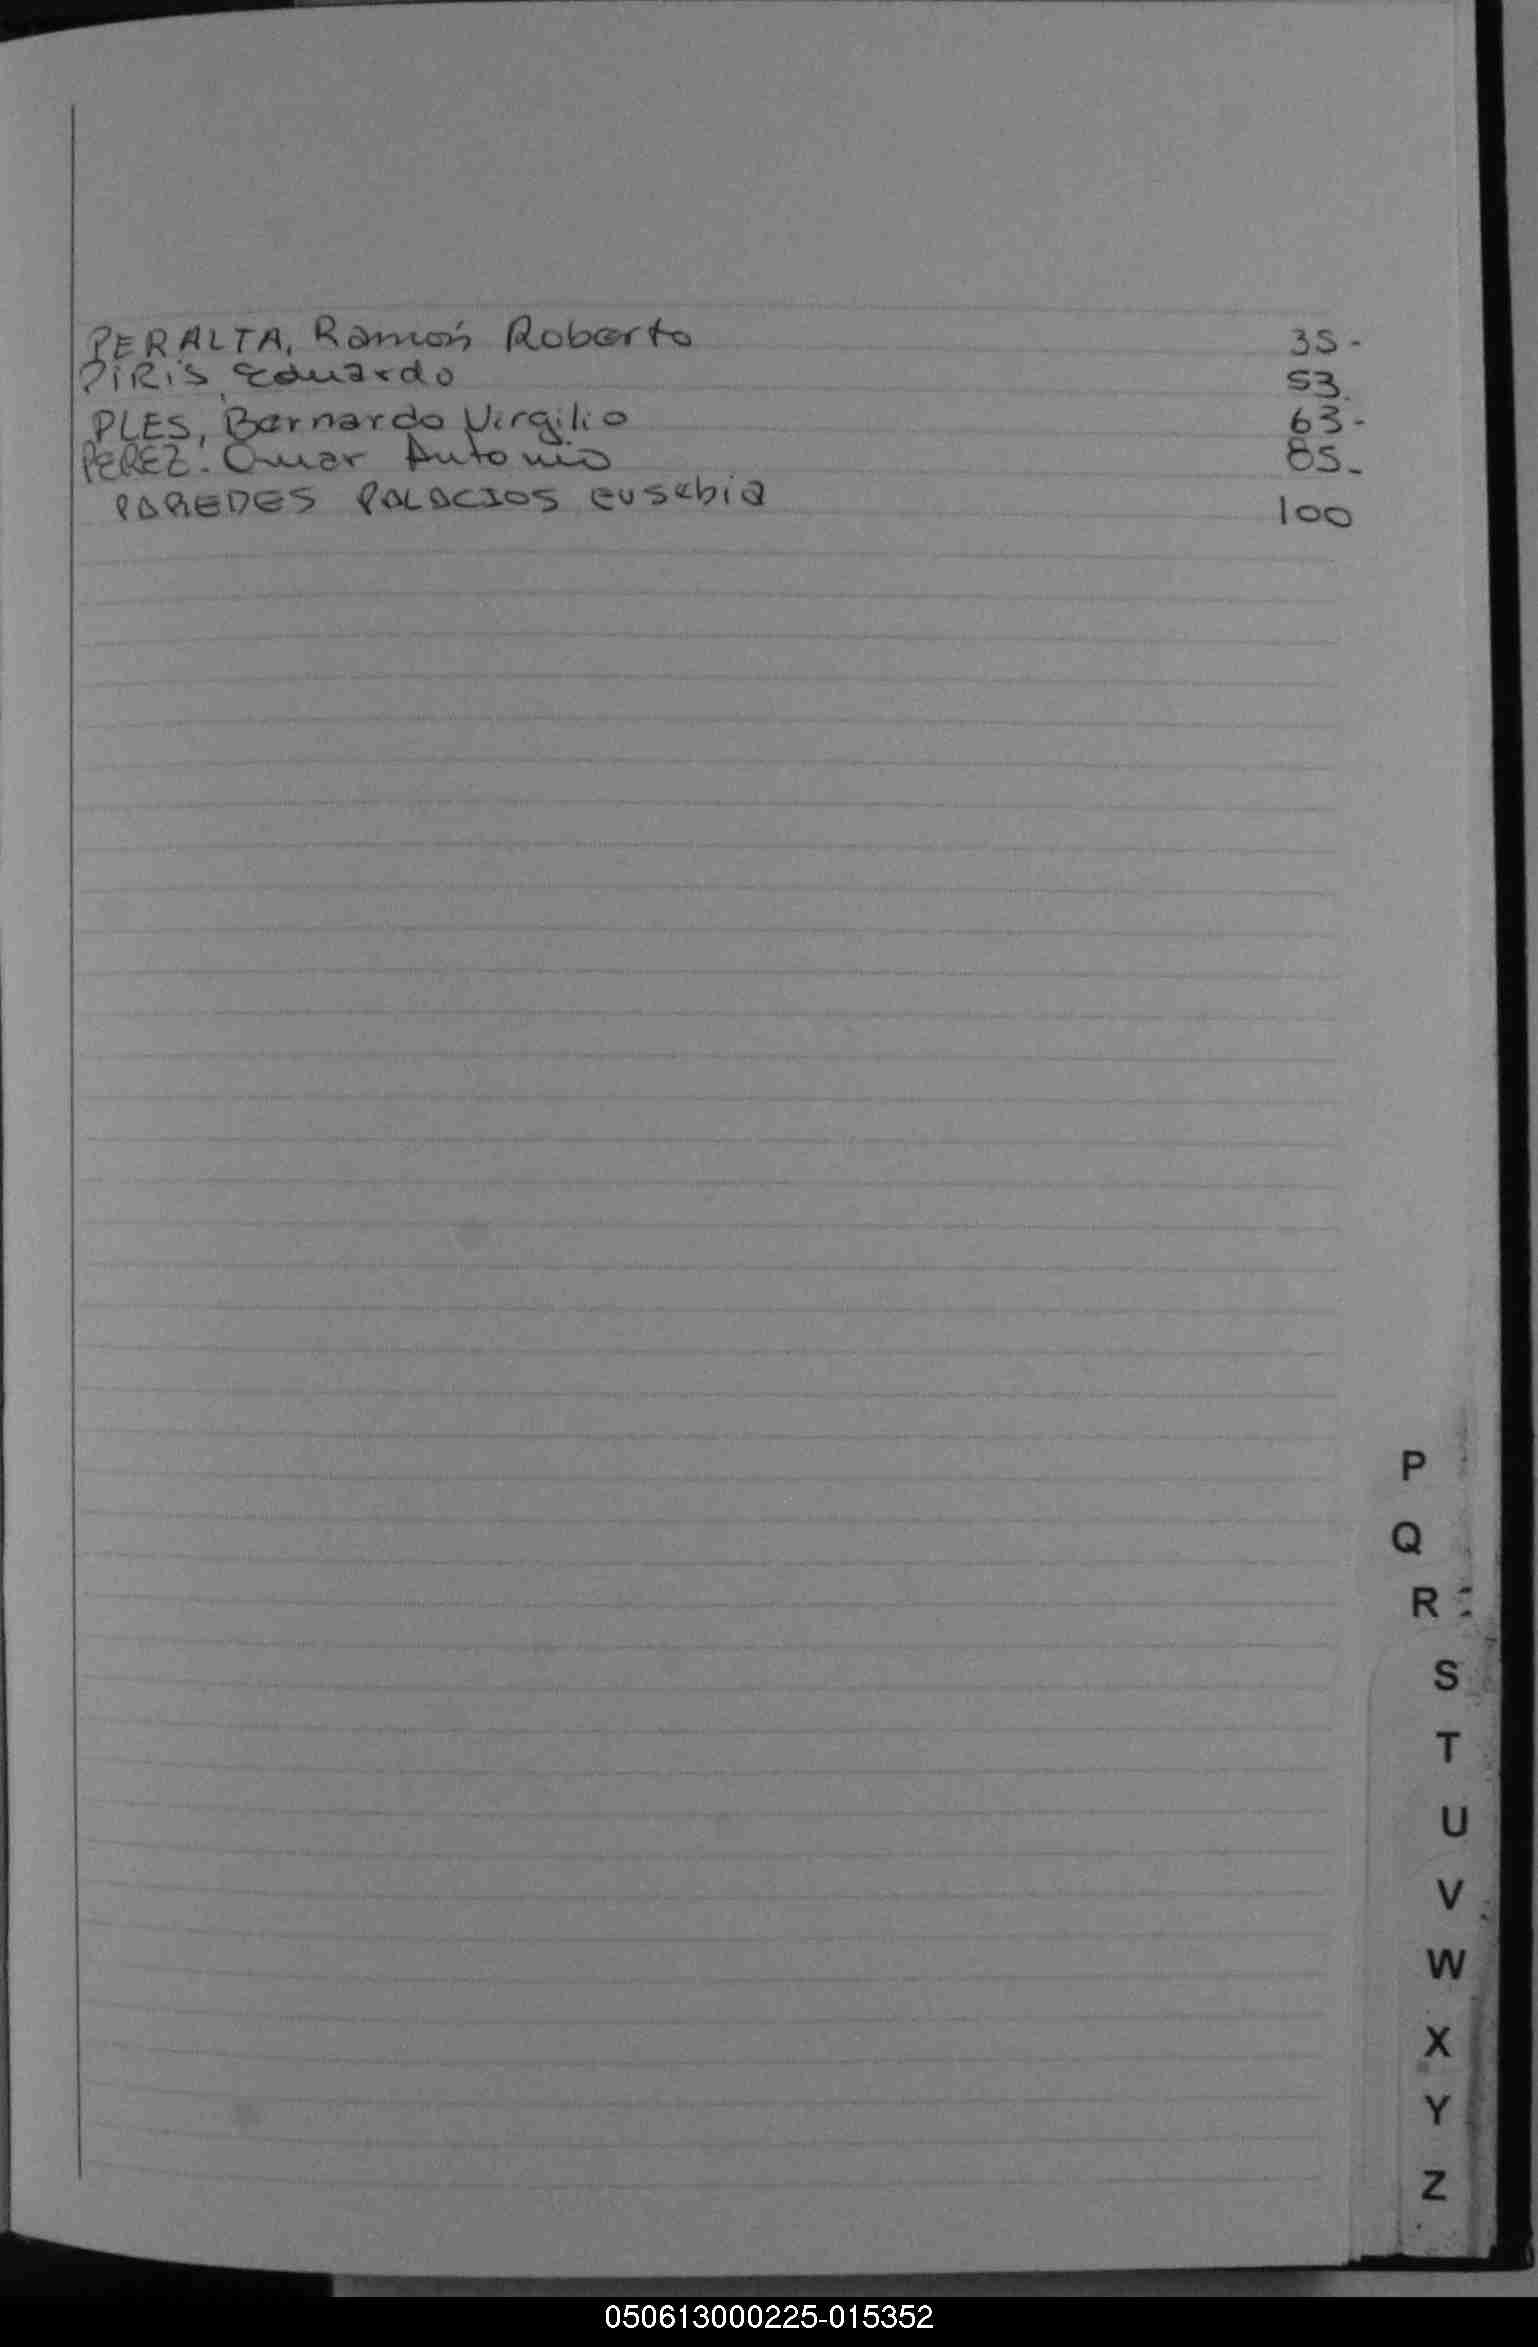 PERALTA, Ramón Roberto 35-
PIRIS, Eduardo 53.
PLES, Bernardo Virgilio 63-
PEREZ. Omar Antonio 85-
PAREDES PALACIOS eusebia 100
P
Q
R
S
T
U
V
W
X
Y
Z
050613000225-015352